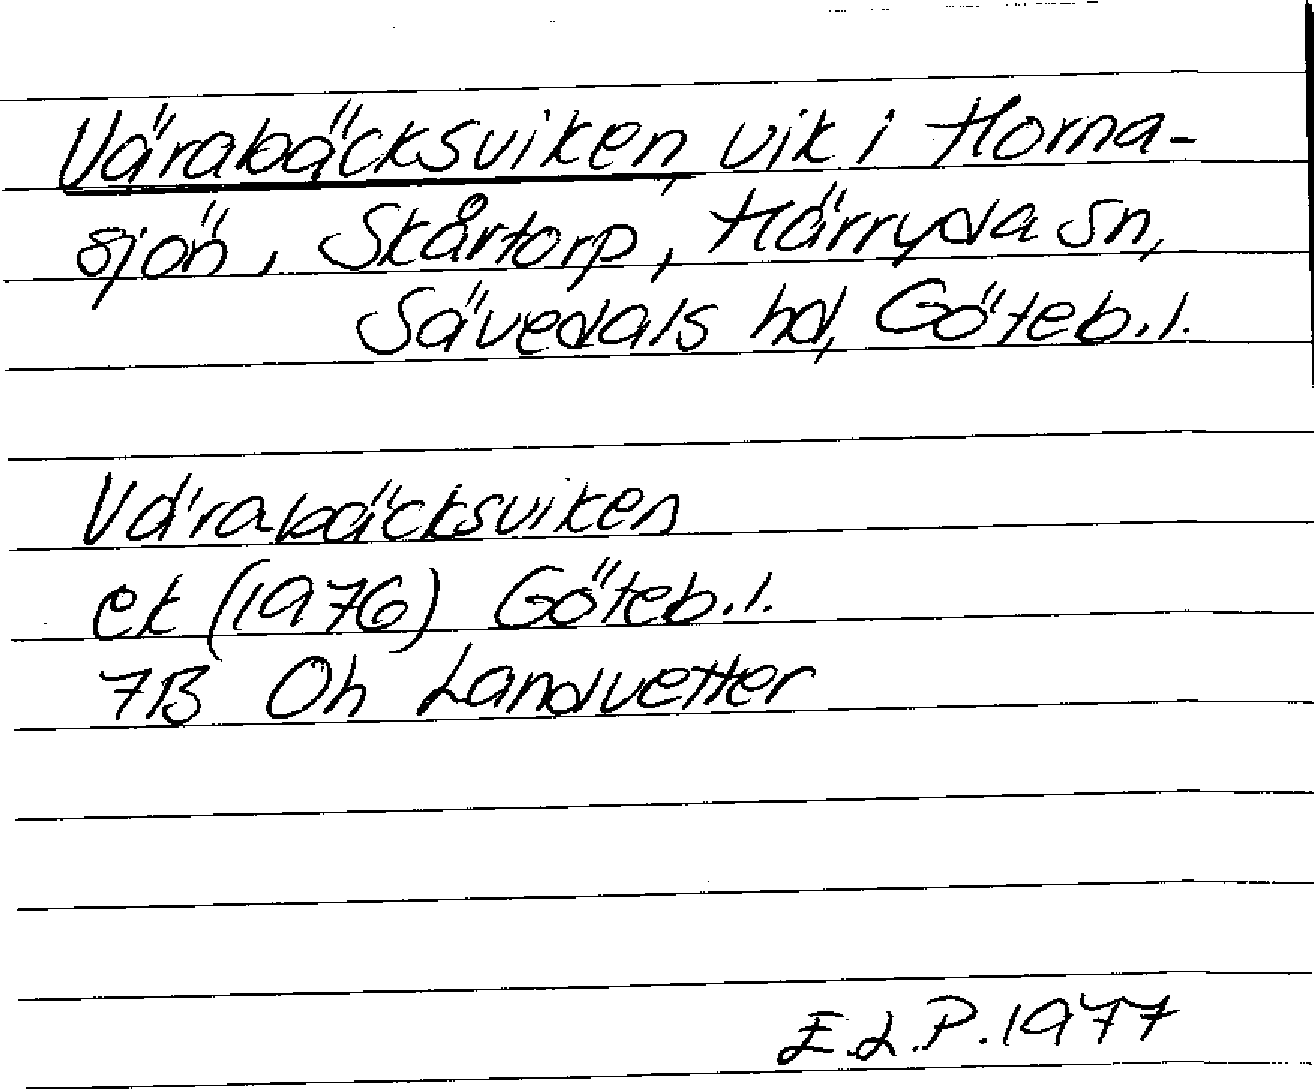 Värabäcksviken, vik i Horna-
sjön, Skårtorp, Härryda sn,
Sävedals hd, Göteb.l.
Värabäcksviken
ek (1976) Göteb.l.
7B Oh Landvetter
E.L.P. 1977